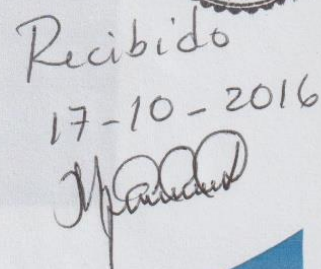 Recibido
17-10-2016